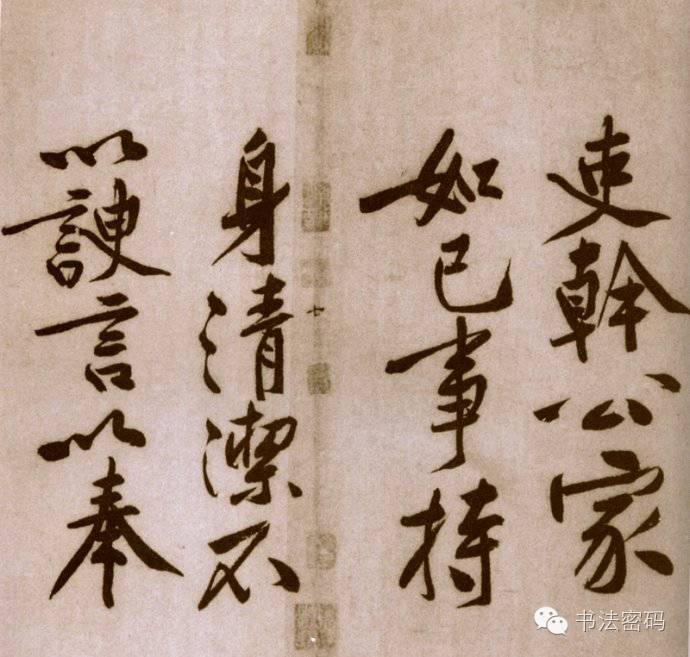 吏幹公家
如己事持
身清潔不
以諛言以奉
书法密码